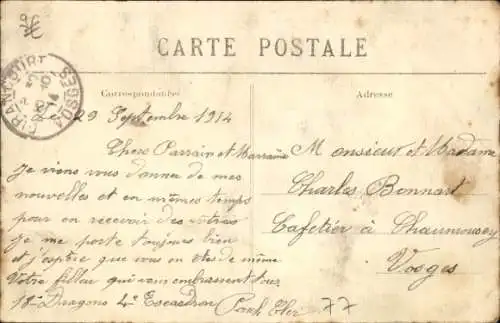 CARTE POSTALE
Correspondance
Adresse
GIRANCOURT VOSGES
Le 29 Septembre 1914
Chers Parrain et Marraine
Je viens vous donner de mes
nouvelles et en mêmes temps
pour en recevoir des vôtres
Je me porte toujours bien
et j'espère que vous en êtes de même
Votre filleu qui vous embrassent tous
18e Dragons 4e Escadron
Monsieur et Madame
Charles Bonnart
Cafetier à Chaumousey
Vosges
77